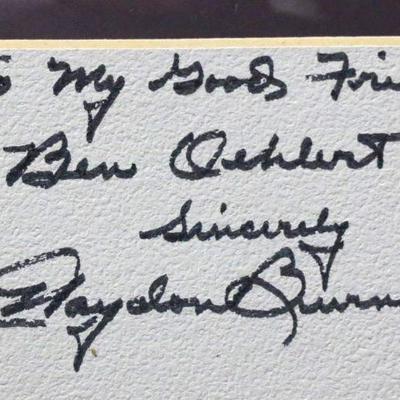 To My Good Fri
Ben Oehlert
Sincerely
Haydon Burn